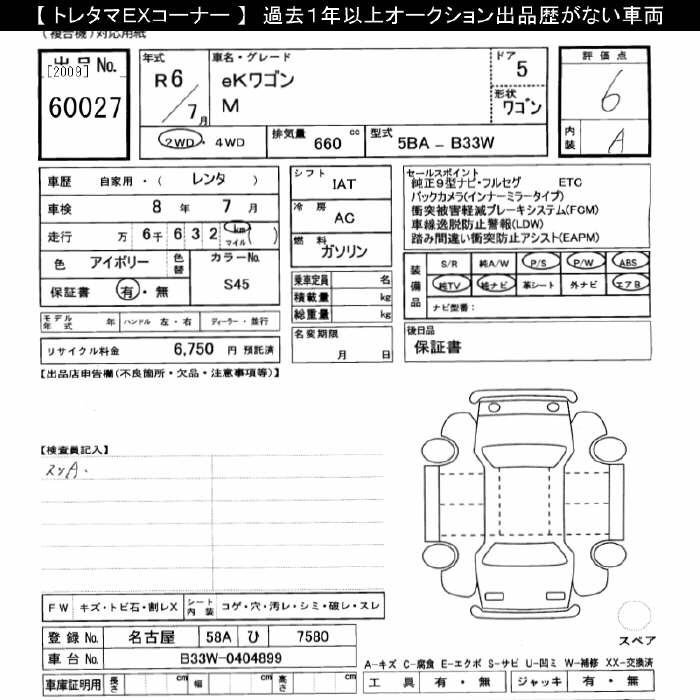 【 トレタマEXコーナー 】 過去1年以上オークション出品歴がない車両
(複合機)対応用紙
出品No.
[2009]
60027
年式
R6
／7月
車名・グレード
eKワゴン
M
ドア
5
形状
ワゴン
2WD・4WD
排気量 660 cc
型式 5BA - B33W
評価点
6
内装 A
車歴 自家用・( レンタ )
車検 8 年 7 月
走行 万 6千 6 3 2 km マイル ( )
色 アイボリー 色替 カラーNo.
S45
保証書 有・無
モデル年式 年 ハンドル 左・右 ディーラー・並行
リサイクル料金 6,750 円 預託済
シフト
IAT
冷房
AC
燃料
ガソリン
乗車定員 名
積載量 kg
総重量 kg
名変期限
月 日
セールスポイント
純正9型ナビ・フルセグ ETC
バックカメラ(インナーミラータイプ)
衝突被害軽減ブレーキシステム(FCM)
車線逸脱防止警報(LDW)
踏み間違い衝突防止アシスト(EAPM)
装備品
S/R 純A/W P/S P/W ABS
純TV 純ナビ 革シート 外ナビ エアB
ナビ型番：
後日品
保証書
【出品店申告欄(不良箇所・欠品・注意事項等)】
【検査員記入】
FW キズ・トビ石・割レX シート内装 コゲ・穴・汚レ・シミ・破レ・スレ
登録No. 名古屋 58A ひ 7580
車台No. B33W-0404899
車庫証明用 長さ cm 幅 cm 高さ cm
スペア
A-キズ C-腐食 E-エクボ S-サビ U-凹ミ W-補修 XX-交換済
工具 有・無 ジャッキ 有・無